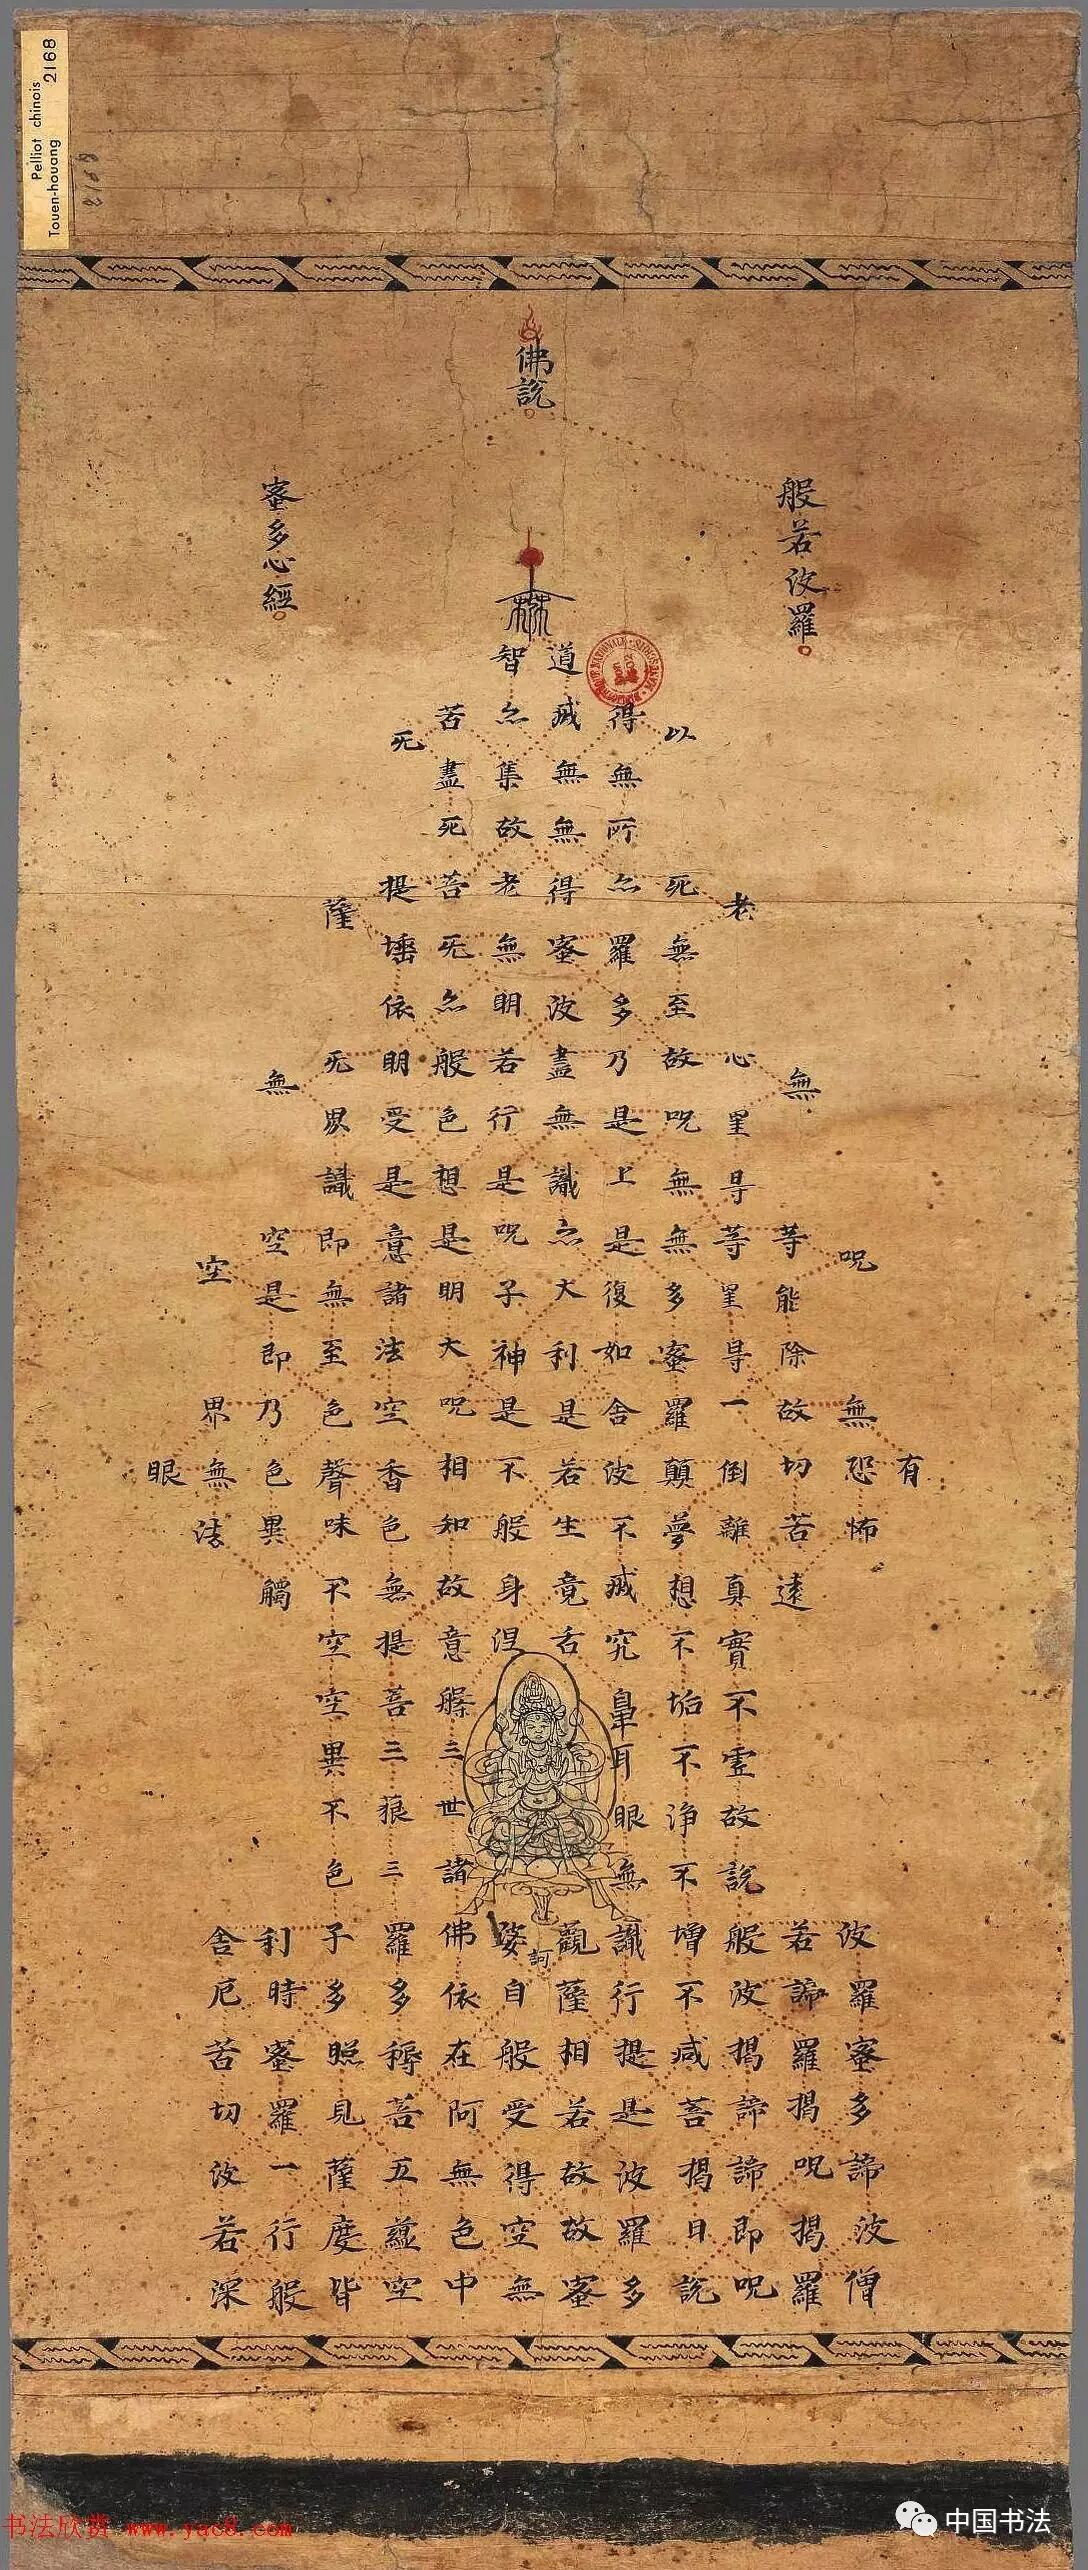 Pelliot chinois
Touen-houang 2168
佛說
般若波羅
蜜多心經
有
呪無恐怖波羅蜜多諦波僧
無等能除故切苦遠若諦羅揭呪揭羅
老心罣㝵等罣㝵一倒離真實不虛故說般波揭諦諦即呪
以死無至故呪無無多蜜羅顛夢想不垢不淨不增不減菩揭曰說
得無所亦羅多乃是上是復如舍波不滅究鼻耳眼無識行提是波羅多
道滅無無得蜜波盡無識亦大利是若生竟舌觀薩相若故故蜜
訶
智亦集故老無明若行是呪子神是不般身涅婆自般受得空無
苦盡死菩无亦般色想是明大呪相知故意槃三世諸佛依在阿無色中
无提埵依明受是意諸法空香色無提菩三藐三羅多耨菩五蘊空
薩无界識即無至色聲味不空空異不色子多照見薩度皆
無空是即乃色異觸利時蜜羅一行般
空界無法舍厄苦切波若深
眼
书法欣赏 www.yac8.com
中国书法